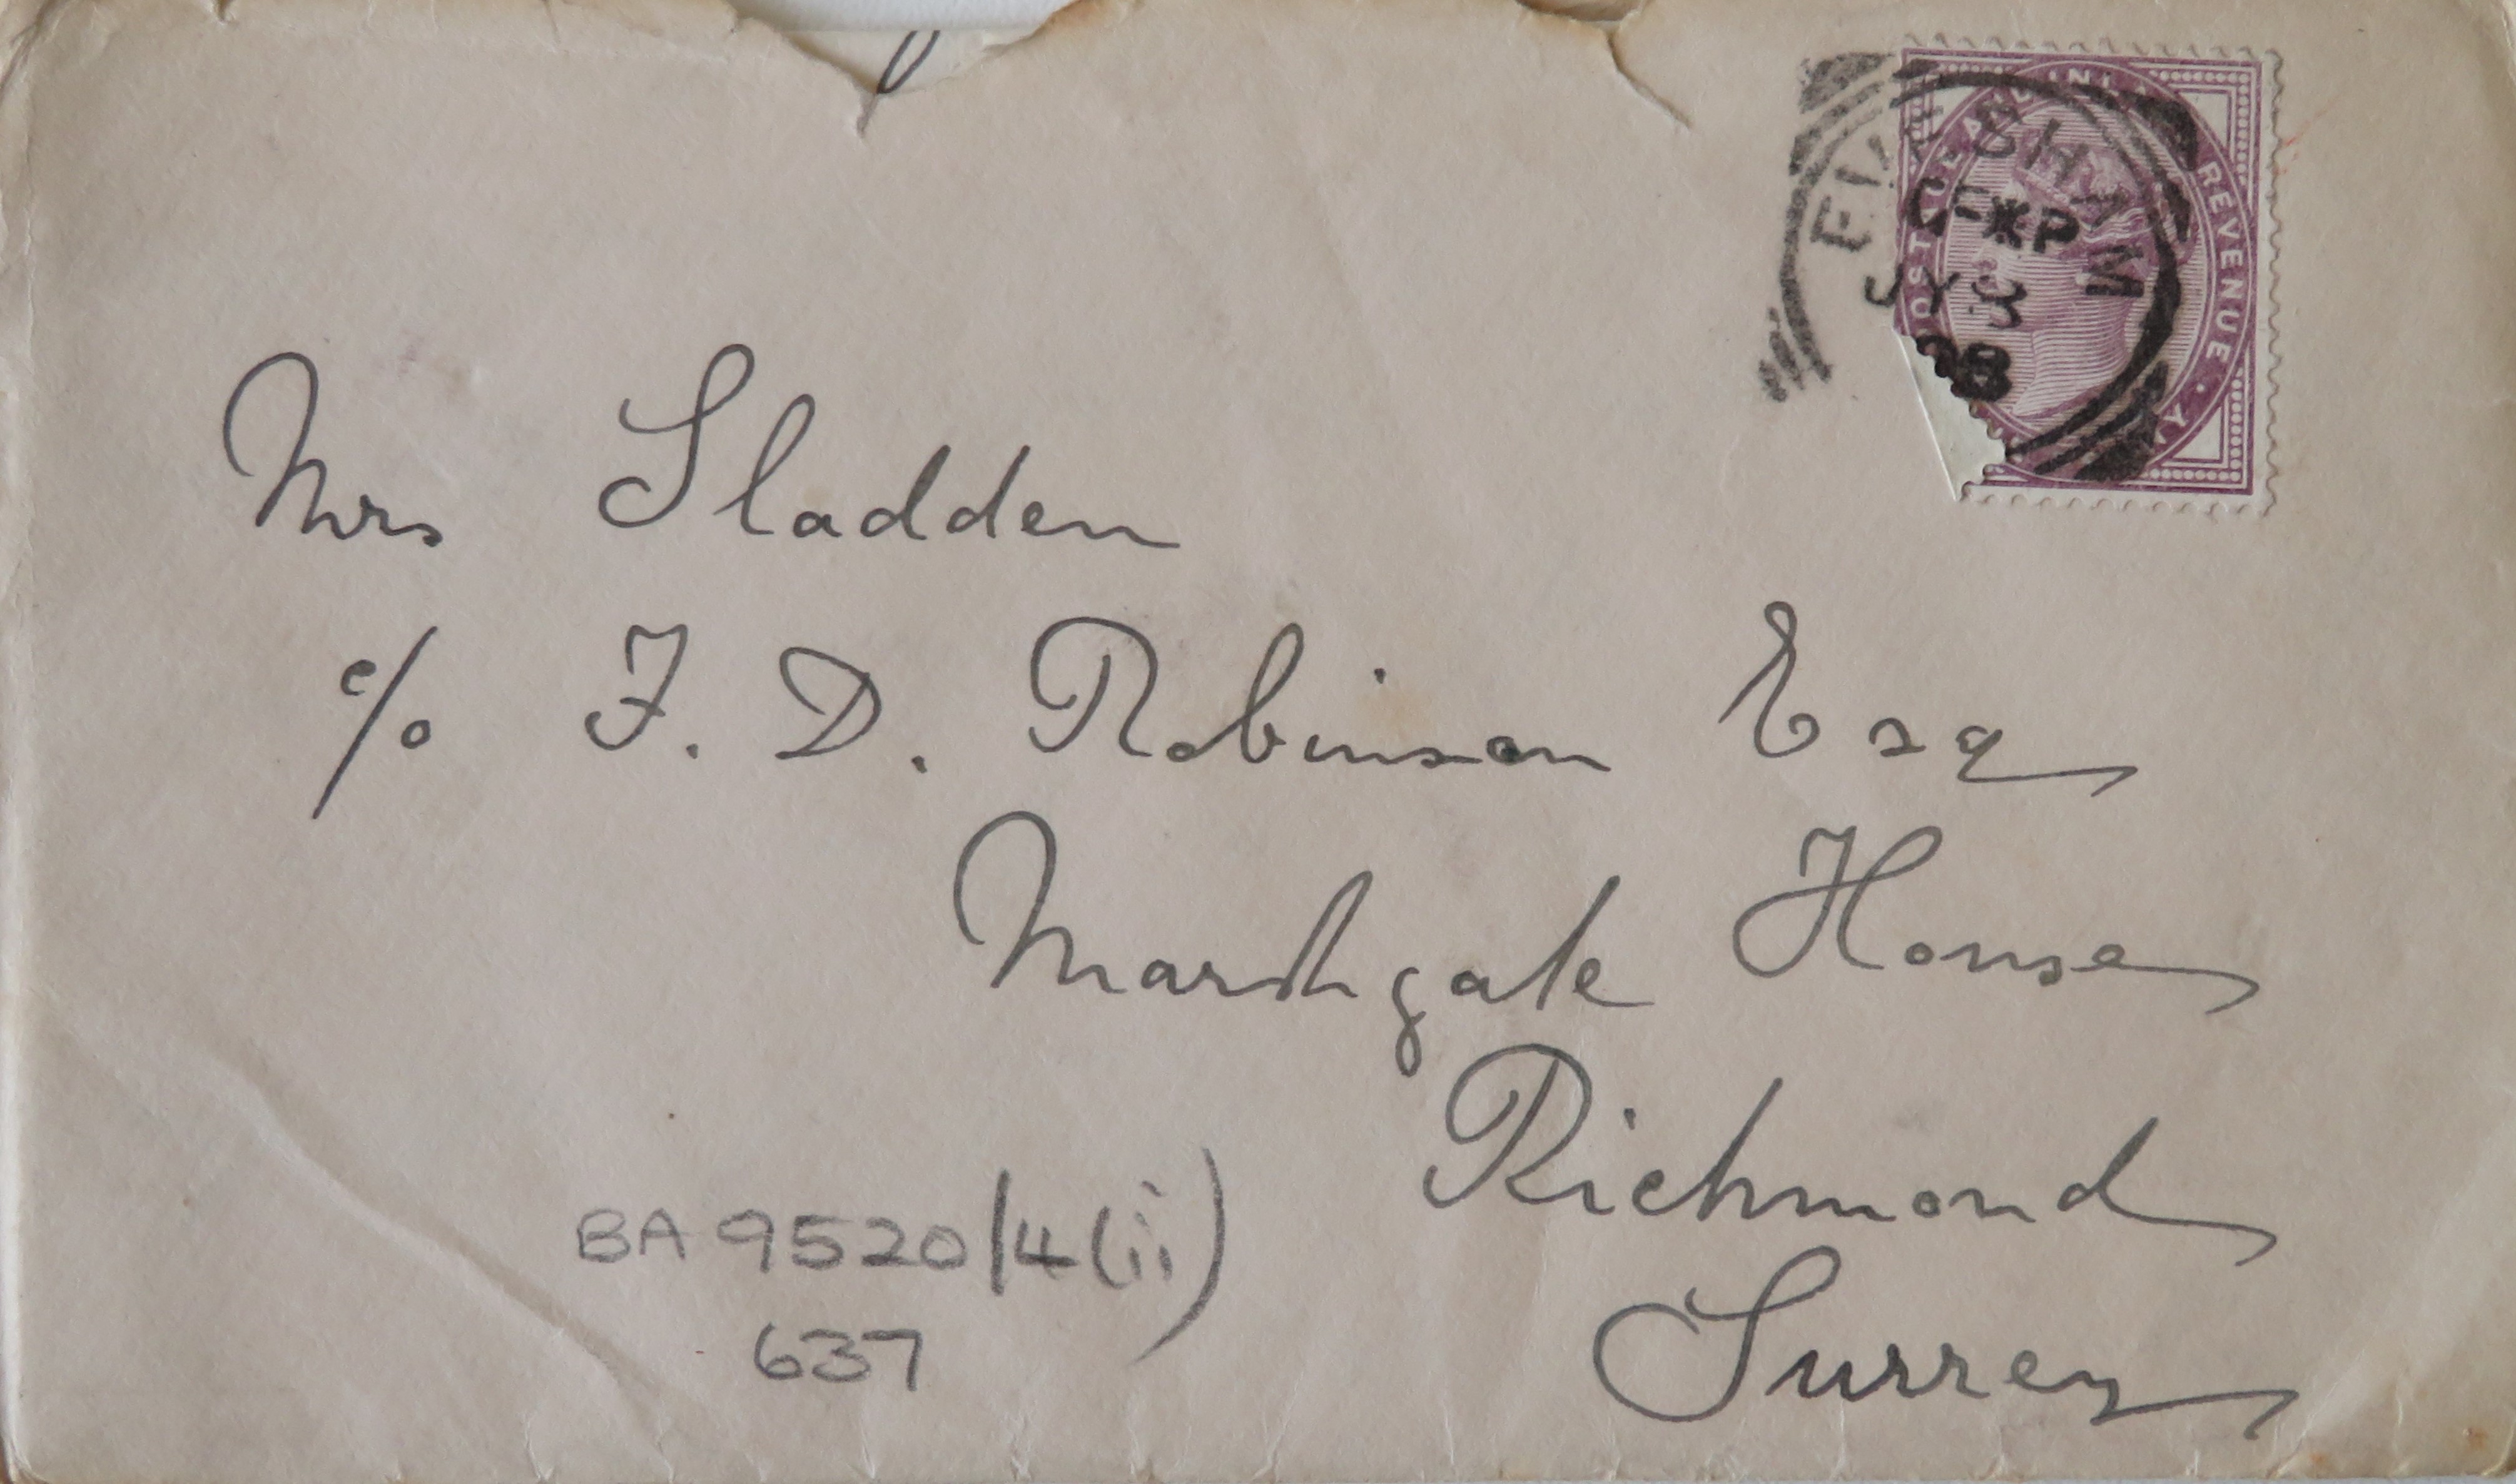 EVESHAM
JY 3
98
POSTAGE AND INLAND REVENUE.
Mrs Sladden
c/o F. D. Robinson Esq
Marshgate House
Richmond
Surrey
BA 9520/4(ii)
637